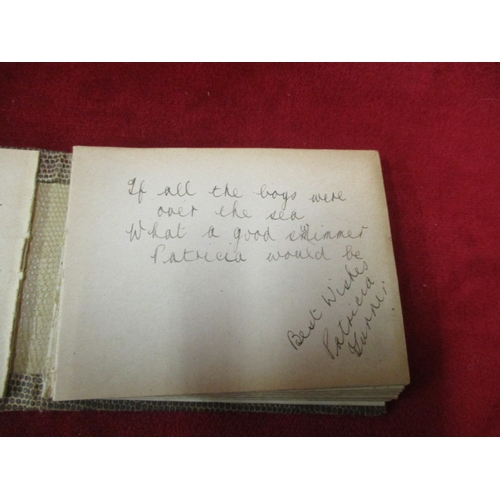 If all the boys were
over the sea
What a good skimmer
Patricia would be
Best Wishes
Patricia